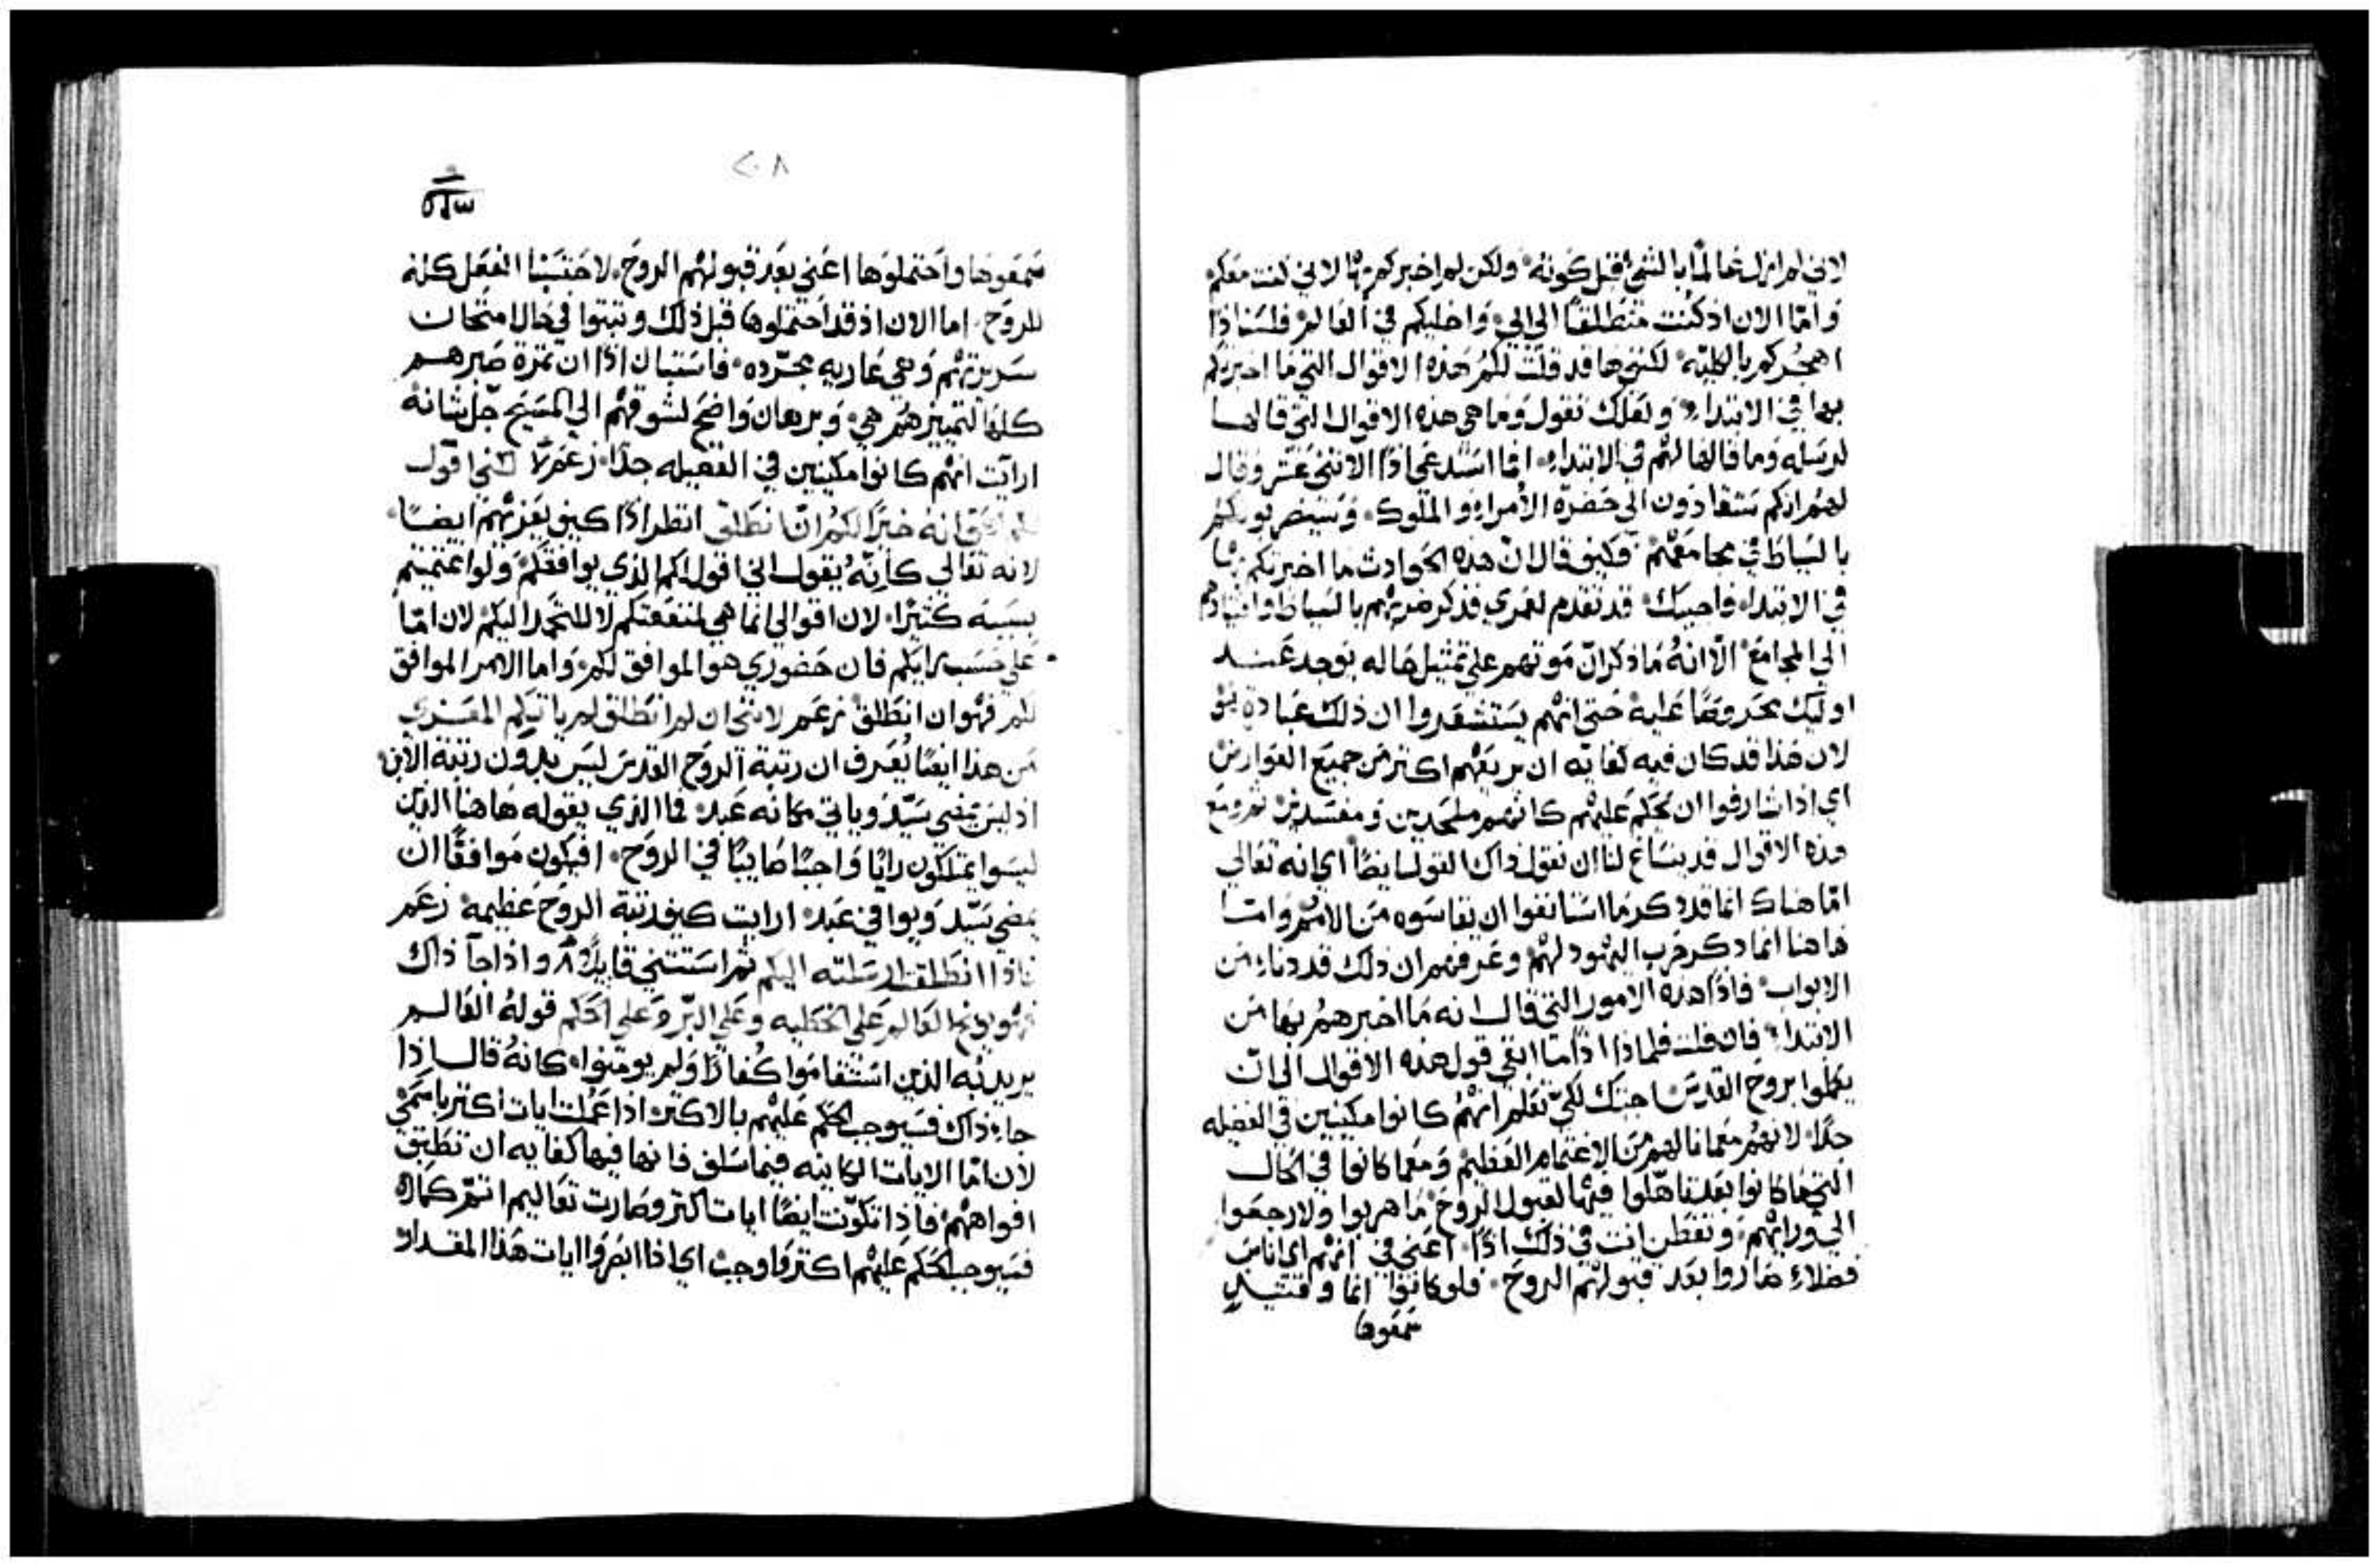 لاني لم ازل عالمًا بالشي قبل كونه ولكن لم اخبركم بها لاني كنت معكم
وامّا الان اذ كنت منطلقًا الى ابي واخليكم في العالم فلست اذًا
اهجركم بالكليه لكنني ها قد قلت لكم هذه الاقوال التي ما اخبرتكم
بها في الابتداء ولعلك تقول وما هي هذه الاقوال التي قالها
لرسله وما قالها لهم في الابتداء امّا استدعى اذًا الاثني عشر وقال
لهم انكم ستقادون الى حضرة الأمراء والملوك وسيضربونكم
بالسياط في مجامعهم فكيف قال ان هذه الحوادث ما اخبرتكم بها
في الابتداء فاجيبك قد تقدم لعمري فذكر ضربهم بالسياط واقتيادهم
الي المجامع الّا انهُ ما ذكر انّ موتهم على تمثيل حاله يوجد عند
اوليك محروصًا عليه حتى انهم يستشعروا ان ذلك عبادة
لان هذا قد كان فيه كفايه ان يريعهم اكثر من جميع العوارض
اي اذا شارفوا ان يحكم عليهم كانهم ملحدين ومفسدين ثم ومع
هذه الاقوال قد يساغ لنا ان نقول ذاك القول ايضًا اي انه تعالى
امّا هناك انما قد ذكر ما استانفوا ان يقاسوه من الامم وامّا
هاهنا انما ذكر حرب اليهود لهم وعرفهم ان ذلك قد دناء من
الابواب فاذًا هذه الامور التي قال انه ما اخبرهم بها من
الابتداء فان قلت فلماذا اذًا ما ابقي قول هذه الاقوال الى ان
يكملوا بروح القدس اجبتك لكي تعلم انهم كانوا مكينين في الفضيله
جدًا لانهم معما نالهم من الاغتمام العظيم ومعما كانوا في الحال
التي ما كانوا بعد تاهلوا فيها لقبول الروح ما هربوا ولا رجعوا
الي ورائهم وتفطن انت في ذلك اذًا اعني في انهم اي اناس
فضلاء صاروا بعد قبولهم الروح فلو كانوا انما وقتيذٍ
سمعوها
٢٠٨
سمعوها واحتملوها اعني بعد قبولهم الروح لاحتسبنا الفعل كله
للروح اما الان اذ قد احتملوها قبل ذلك وثبتوا في حال امتحان
سريرتهم وهي عاريه مجرّده فاستبان اذًا ان ثمرة صبرهم
كلها لتمييزهم هي وبرهان واضح لشوقهم الي المسيح جل شانه
ارايت انهم كانوا مكينين في الفضيله جدًا زعم لكنني اقول
لكم الحق انه خيرًا لكم ان انطلق انظر اذًا كيف يعزيهم ايضًا
لانه تعالي كانّه يقول اني اقول لكم الذي يوافقكم ولو اغتميتم
بسببه كثيرًا لان اقوالي انما هي لمنفعتكم لا للتحمد اليكم لان امّا
على حسب رايكم فان حضوري هو الموافق لكم واما الامر الموافق
لكم فهو ان انطلق زعم لانني ان لم انطلق لم ياتيكم المعزي
من هذا ايضًا يُعرف ان رتبة الروح القدس ليس بدون رتبة الابن
اذ ليس يمضي سيّد وياتي مكانه عبد فما الذي يقوله هاهنا الذين
ليسوا يمتلكون رايًا واجبًا صايبًا في الروح افيكون موافقًا ان
يمضي سيّد ويوافي عبد ارايت كيف رتبة الروح عظيمه زعم
فاذا انطلقت ارسلته اليكم ثم استثنى قايلًا ٨ واذا جآ ذاك
فهو يوبخ العالم على الخطيه وعلى البرّ وعلى الحكم قوله العالم
يريد به الذين استقاموا كفارًا ولم يومنوا كانهُ قال اذا
جاء ذاك فسيوجب الحكم عليهم بالاكثر اذا عُملت ايات اكثر باسمي
لان امّا الايات الكاينه فيما سلف فانها فيها كفايه ان تطبق
افواههم فاذا تكوّنت ايضًا ايات اكثر وصارت تعاليم اتمّ كمالًا
فسيوجب الحكم عليهم اكثر فاوجب اي اذا ابصروا ايات هذا المقدار